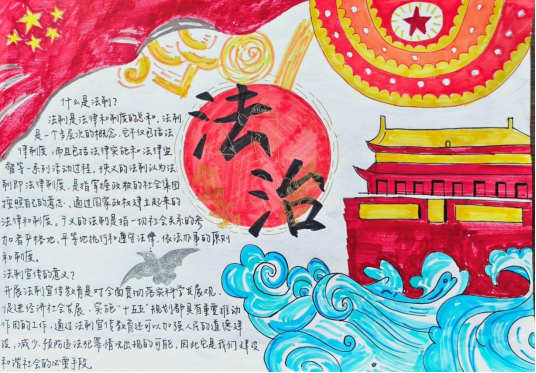 法治
什么是法制？
法制是法律和制度的总和。法制
是一个多层次的概念，它不仅包括法
律制度，而且包括法律实施和法律监
督等一系列活动过程。狭义的法制认为法
制即法律制度。是指掌握政权的社会集团
按照自己的意志、通过国家政权建立起来的
法律和制度。广义的法制是指一切社会关系的参
加者严格地、平等地执行和遵守法律、依法办事的原则
和制度。
法制宣传的意义？
开展法制宣传教育是对全面贯彻落实科学发展观、
促进经济社会发展、实施“十五”规划都具有重要推动
作用的工作，通过法制宣传教育还可以加强人民的道德建
设，减少、预防违法犯罪情况出现的可能，因此它是我们建设
和谐社会的必要手段。